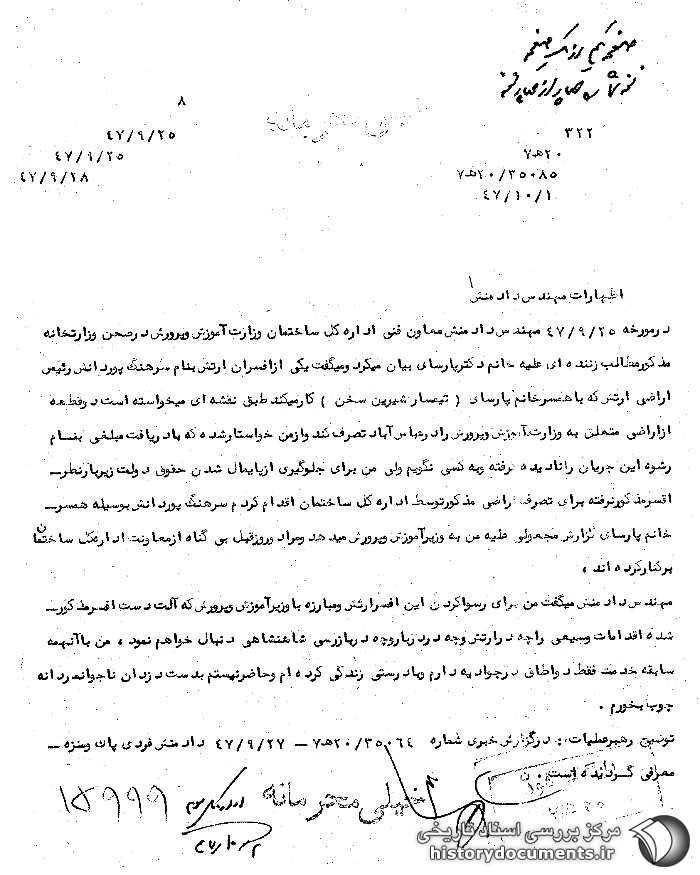 ۸
۴۷/۹/۲۵
۴۷/۹/۲۵
۴۷/۹/۲۸
۳۲۲
۲۰ه۷
۷ه۲۰/۳۵۰۸۵
۴۷/۱۰/۱
اظهارات مهندس دادمنش
درمورخه ۴۷/۹/۲۵ مهندس دادمنش معاون فنی اداره کل ساختمان وزارت آموزش وپرورش درصحن وزارتخانه
مذکورمطالب زننده ای علیه خانم دکترپارسای بیان میکرد ومیگفت یکی ازافسران ارتش بنام سرهنگ پوردانش رئیس
اراضی ارتش که باهمسرخانم پارسای ( تیمسار شیرین سخن ) کارمیکند طبق نقشه ای میخواسته است دوقطعه
ازاراضی متعلق به وزارت آموزش وپرورش رادرعباس آباد تصرف کند وازمن خواستارشده که بادریافت مبلغی بنام
رشوه این جریان رانادیده گرفته وبه کسی نگویم ولی من برای جلوگیری ازپایمال شدن حقوق دولت زیربارنظر
افسرمذکورنرفته برای تصرف اراضی مذکورتوسط اداره کل ساختمان اقدام کردم سرهنگ پوردانش بوسیله همسر
خانم پارسای گزارش مجعولی علیه من به وزیرآموزش وپرورش میدهد ومرادوروزقبل بی گناه ازمعاونت اداره کل ساختمان
برکنارکرده اند ،
مهندس دادمنش میگفت من برای رسواکردن این افسرارتش ومبارزه باوزیرآموزش وپرورش که آلت دست افسرمذکور
شده اقدامات وسیعی راچه درارتش وچه دردربار وچه دربازرسی شاهنشاهی دنبال خواهم نمود ، من باآنهمه
سابقه خدمت فقط دواطاق درجوادیه دارم وبادرستی زندگی کرده ام وحاضرنیستم بدست دزدان ناجوانمردانه
چوب بخورم .
توضیح رهبرعملیات : درگزارش خبری شماره ۷ه۲۰/۳۵۰۶۴ — ۴۷/۹/۲۷ دادمنش فردی پاک ومنزه
معرفی گردانده است .
خیلی محرمانه
۱۵۹۹۹
مرکز بررسی اسناد تاریخی
historydocuments.ir